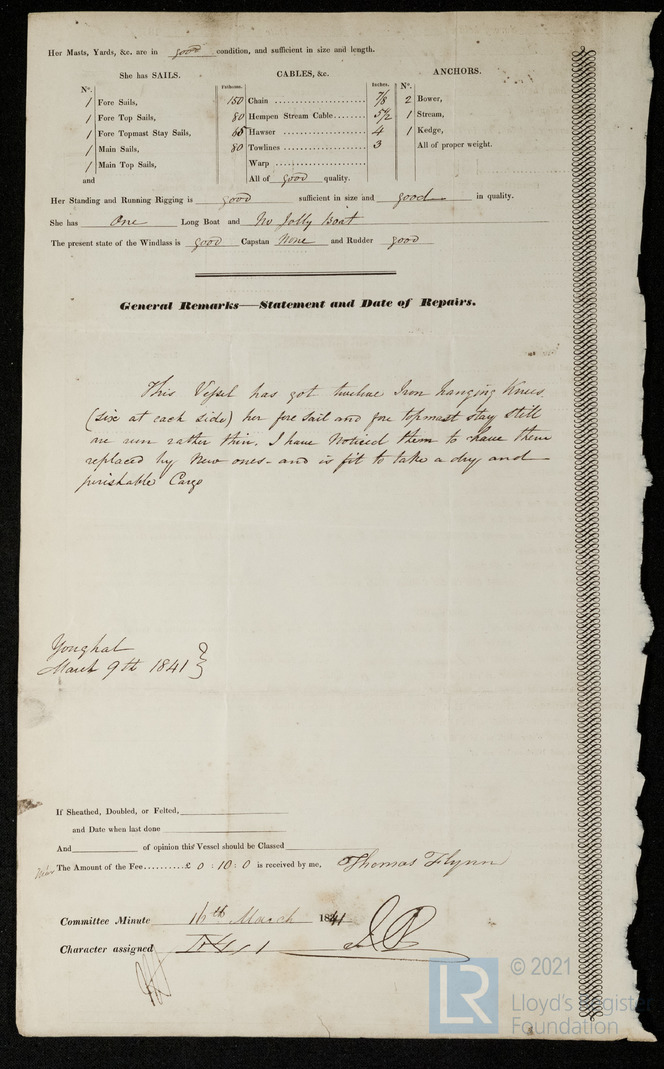 Her Masts, Yards, &c. are in good condition, and sufficient in size and length.
She has SAILS. CABLES, &c. ANCHORS.
No. Fathoms. Inches. No.
1 Fore Sails, 150 Chain 7/8 2 Bower,
1 Fore Top Sails, 80 Hempen Stream Cable 5 1/2 1 Stream,
1 Fore Topmast Stay Sails, 65 Hawser 4 1 Kedge,
1 Main Sails, 80 Towlines 3 All of proper weight.
1 Main Top Sails, Warp
and All of good quality.
Her Standing and Running Rigging is good sufficient in size and good in quality.
She has One Long Boat and No Jolly Boat
The present state of the Windlass is good Capstan None and Rudder good
General Remarks—Statement and Date of Repairs.
This Vessel has got twelve Iron hanging Knees
(six at each side) her fore sail and fore topmast stay still
are run rather thin. I have Noticed them to have them
replaced by New ones - and is fit to take a dry and
perishable Cargo
Youghal
March 9th 1841
If Sheathed, Doubled, or Felted,
and Date when last done
And of opinion this Vessel should be Classed
The Amount of the Fee.......... £ 0 : 10 : 0 is received by me, Thomas Flynn
Committee Minute 16th March 1841
Character assigned
LR
© 2021
Lloyd's Register
Foundation